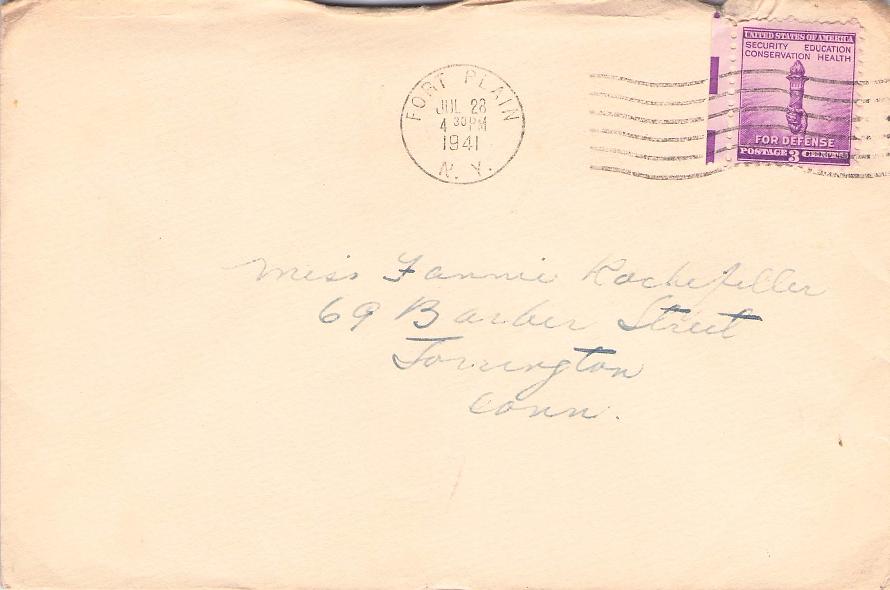 FORT PLAIN
JUL 28
4 30 PM
1941
N. Y.
UNITED STATES OF AMERICA
SECURITY EDUCATION
CONSERVATION HEALTH
FOR DEFENSE
POSTAGE 3 CENTS
Miss Fannie Rockefeller
69 Barber Street
Torrington
Conn.